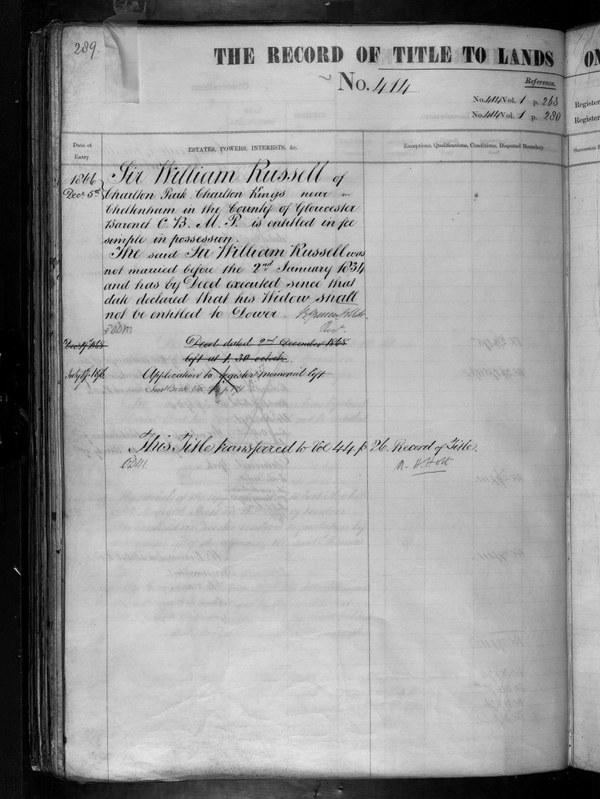 289.
THE RECORD OF TITLE TO LANDS
No. 414
Reference.
No. 414 Vol. 1 p. 268
No. 414 Vol. 1 p. 280
Date of
Entry
ESTATES, POWERS, INTERESTS, &c.
Exceptions, Qualifications, Conditions, Disputed Boundary
1866
Decr 5th
Sir William Russell of
Charlton Park Charlton Kings near
Cheltenham in the County of Gloucester
Baronet C. B. M. P. is entitled in fee
simple in possession.
The said Sir William Russell was
not married before the 2nd January 1834
and has by Deed executed since that
date declared that his Widow shall
not be entitled to Dower.
Deed dated 2nd December 1868
left at 1.30 oclock
Application to register memorial left
This Title transferred to Vol 44 p 26. Record of Title.
ON
Register
Register